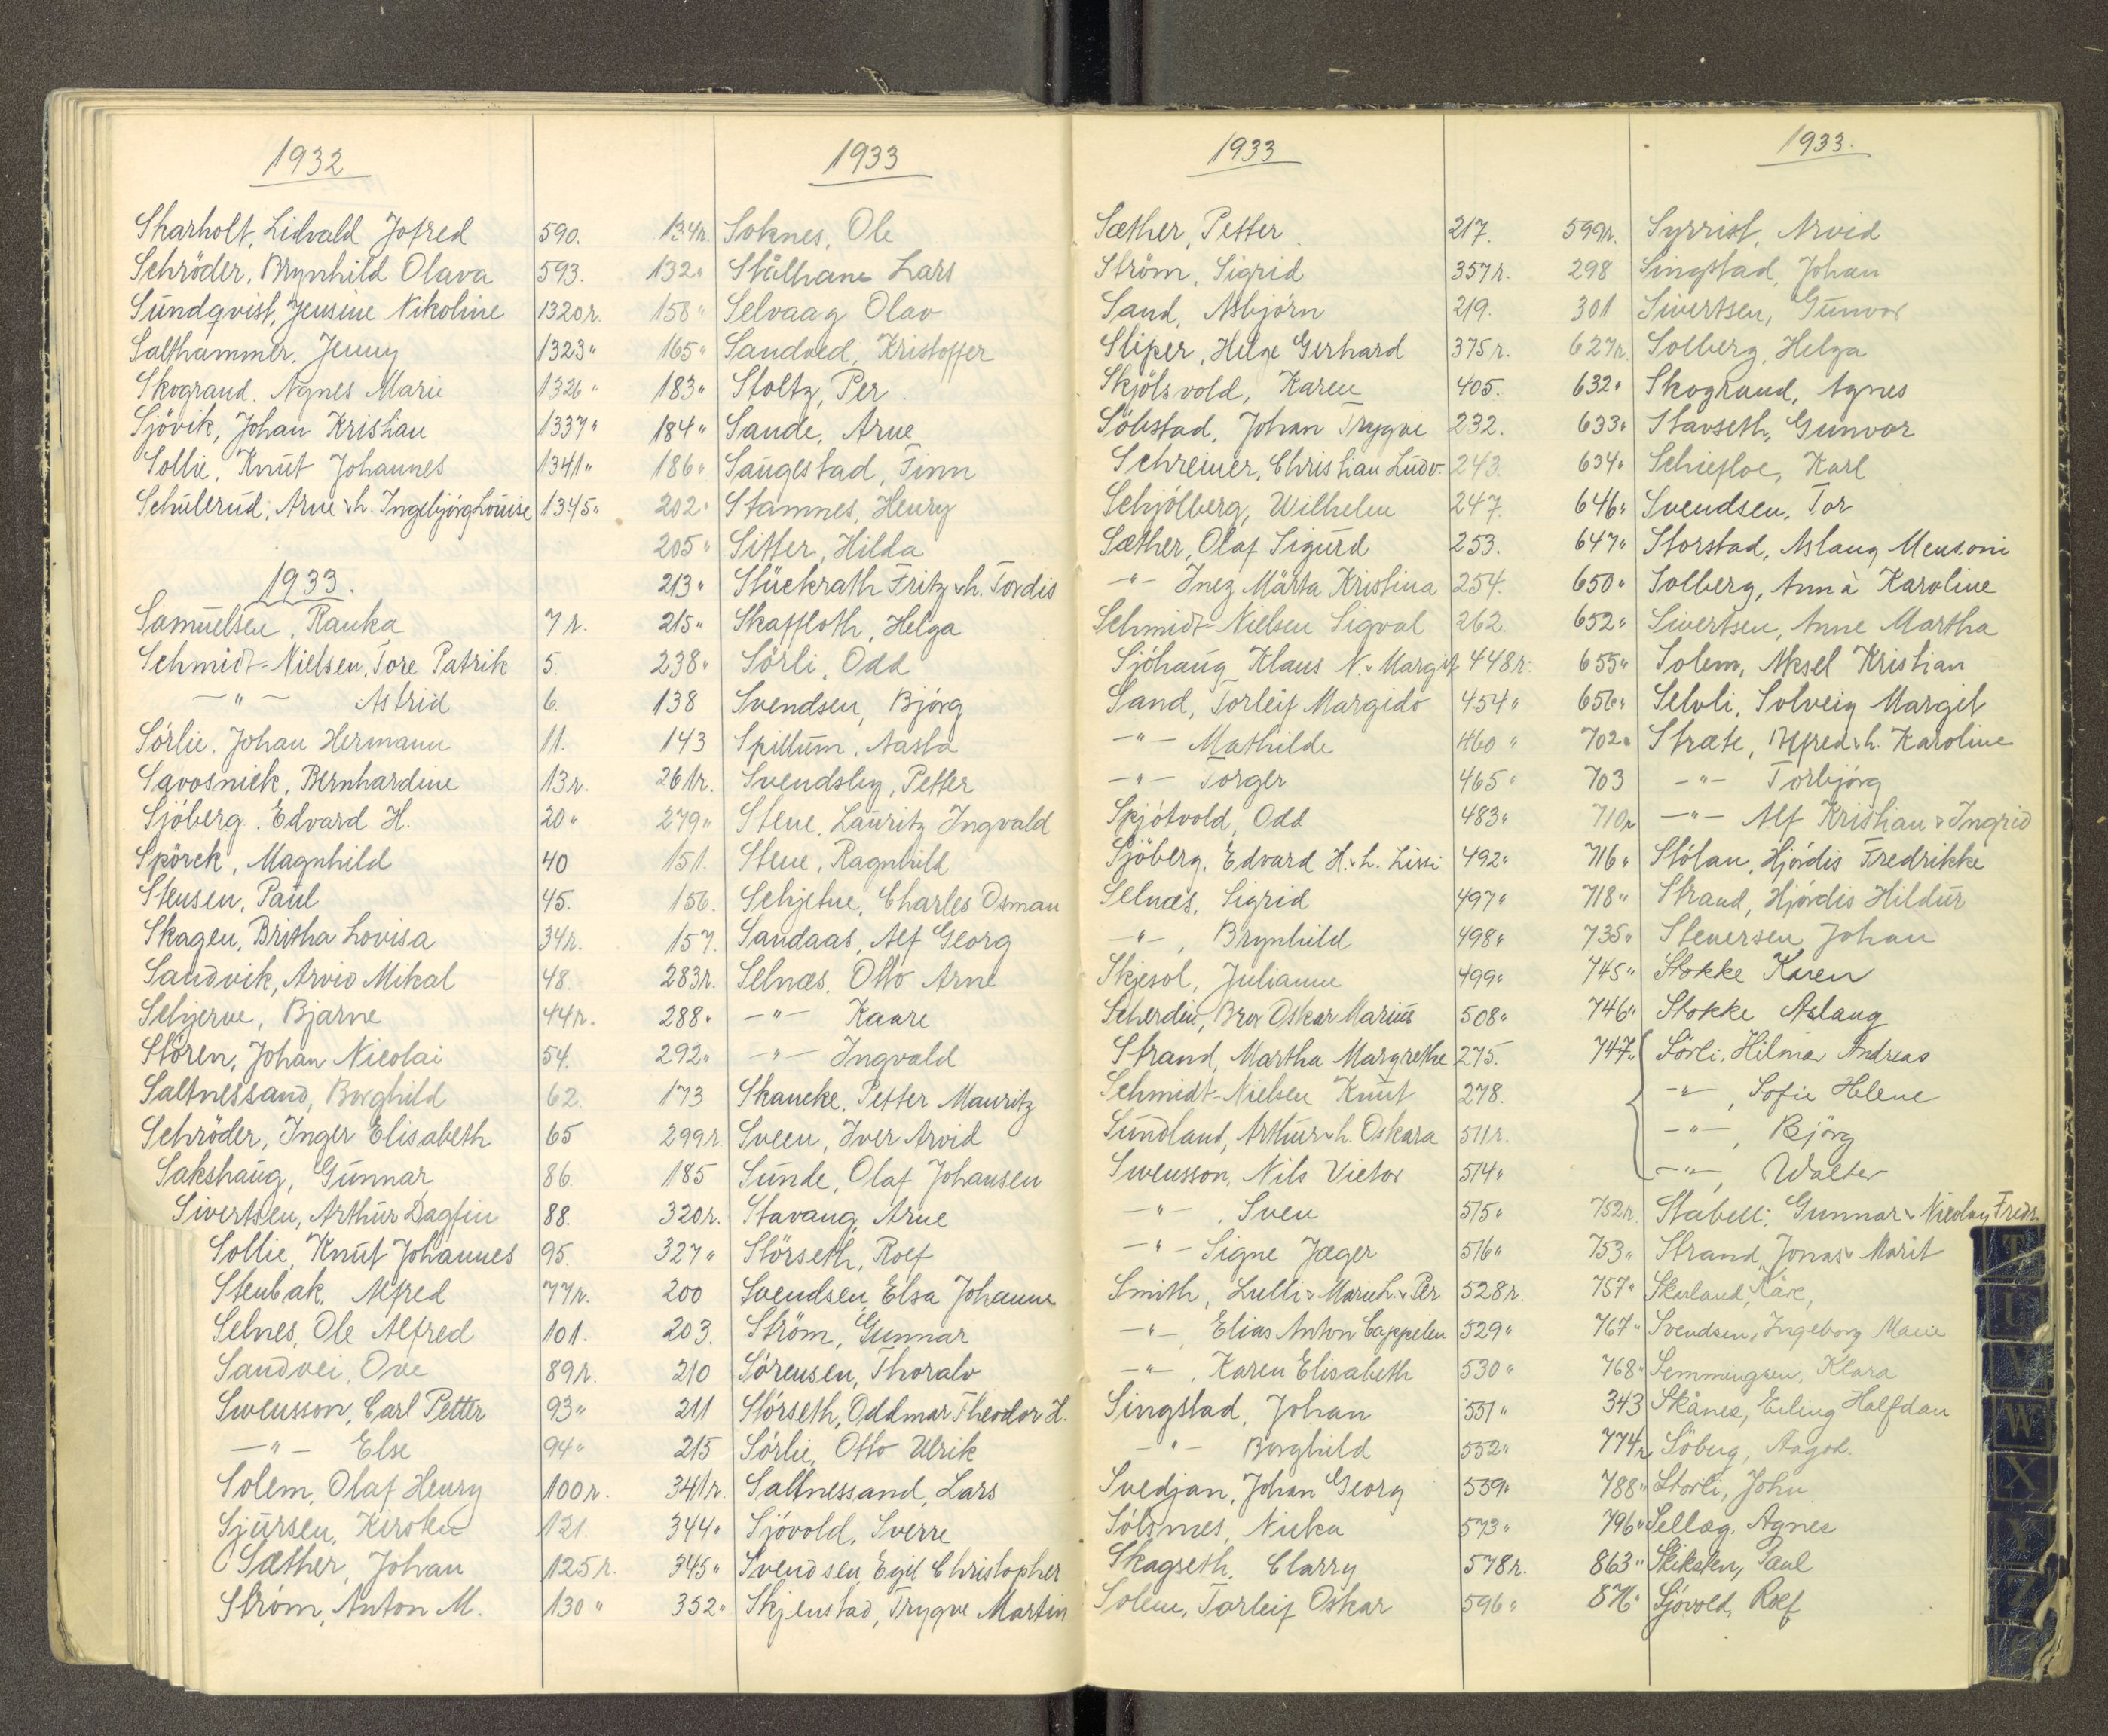 1932
Skarholt, Lidvald Jofred 590.
Schröder, Brynhild Olava 593.
Sundqvist, Jensine Nikoline 1320r.
Salthammer, Jenny 1323"
Skogrand. Agnes Marie 1326"
Sjövik, Johan Kristian 1337"
Sollie, Knut Johannes 1341"
Schulerud, Arne & h. Ingebjörg Louise 1345"
1933.
Samuelsen, Ranka 7r.
Schmidt-Nielsen, Tore Patrik 5.
-"- Astrid 6.
Sörlie, Johan Hermann 11.
Savosnick, Bernhardine 13r.
Sjöberg. Edvard H. 20"
Spörck, Magnhild 40
Stensen, Paul 45.
Skagen, Britha Lovisa 34r.
Sandvik, Arvid Mikal 48.
Schjerve, Bjarne 44r.
Stören, Johan Nicolai 54.
Saltnessand, Borghild 62.
Schröder, Inger Elisabeth 65
Sakshaug, Gunnar 86
Sivertsen, Arthur Dagfin 88.
Sollie, Knut Johannes 95.
Stenbak, Alfred 77r.
Selnes, Ole Alfred 101.
Sandvei, Ove 89r.
Swensson, Carl Petter 93"
-"- Else 94"
Solem, Olaf Henry 100r.
Sjursen, Kirsten 121.
Sæther, Johan 125r.
Ström, Anton M. 130"
1933
134r. Soknes, Ole
132" Stålhane Lars
158" Selvaag Olav
165" Sandved, Kristoffer
183" Stoltz, Per
184" Sande, Arne
186" Saugestad, Finn
202" Stamnes, Henry
205" Sitter, Hilda
213" Stückrath Fritz & h. Tordis
215" Skaffloth, Helga
238" Sörli, Odd
138 Svendsen, Björg
143 Spillum, Aasta
261r. Svendsby, Petter
279" Stene, Lauritz Ingvald
151. Stene, Ragnhild
156. Schjetne, Charles Osman
157. Sandaas, Alf Georg
283r. Selnæs, Otto Arne
288" -"- Kaare
292" -"- Ingvald
173 Skancke, Petter Mauritz
299r. Sveen, Iver Arvid
185 Sunde, Olaf Johansen
320r. Stavang, Arne
327" Störseth, Rolf
200 Svendsen, Elsa Johanne
203. Ström, Gunnar
210 Sörensen, Thoralv
211 Störseth, Oddmar Theodor H.
215 Sörlie, Otto Ulrik
341r. Saltnessand, Lars
344" Sjövold, Sverre
345" Svendsen, Egil Christopher
352" Skjenstad, Trygve Martin
1933
Sæther, Petter 217.
Ström, Sigrid 357r.
Sand, Asbjörn 219.
Sliper, Helge Gerhard 375r.
Skjölsvold, Karen 405.
Söbstad, Johan Trygve 232.
Schreiner, Christian Ludv. 243.
Schjölberg, Wilhelm 247.
Sæther, Olaf Sigurd 253.
-"- Inez Märta Kristina 254.
Schmidt-Nielsen Sigval 262.
Sjöhaug Klaus N. & Margit 448r.
Sand, Torleif Margido 454"
-"- Mathilde 460"
-"- Torger 465"
Spjötvold, Odd 483"
Sjöberg, Edvard H. & h. Lissi 492"
Selnæs, Sigrid 497"
-"-, Brynhild 498"
Skjesol, Julianne 499"
Scherdin, Bror Oskar Marius 508"
Strand, Martha Margrethe 275.
Schmidt-Nielsen Knut 278.
Sundland, Arthur & h. Oskara 511r.
Swensson, Nils Victor 514"
-"-, Sven 515"
-"- Signe Jæger 516"
Smith, Lulli & Marie h. & Per 528r.
-"-, Elias Anton Cappelen 529"
-"-, Karen Elisabeth 530"
Singstad, Johan 551"
-"- Borghild 552"
Svedjan, Johan Georg 559"
Sölsnes, Nicka 573"
Skagseth, Clarry 578r.
Solem, Torleif Oskar 596"
1933.
599r. Syrrist, Arvid
298 Singstad, Johan
301 Sivertsen, Gunvor
627r. Solberg, Helga
632" Skogrand, Agnes
633" Stavseth, Gunvor
634" Schiefloe, Karl
646" Svendsen, Tor
647" Storstad, Aslaug Mensoni
650" Solberg, Anna Karoline
652" Sivertsen, Anne Martha
655" Solem, Aksel Kristian
656" Selvli, Solveig Margit
702" Stræte, Alfred & h. Karoline
703 -"- Torbjörg
710r -"- Alf Kristian & Ingrid
716" Stölan, Hjördis Fredrikke
718" Strand, Hjördis Hildur
735" Stenersen, Johan
745" Stokke Karen
746" Stokke Aslaug
747" Sörli, Hilmar Andreas
-"-, Sofie Helene
-"-, Björg
-"-, Walter
752r. Stabell, Gunnar & Nicolay Fredr.
753" Strand, Jonas & Marit
757" Skuland, Kåre,
767" Svendsen, Ingeborg Marie
768" Semmingsen, Klara
343 Skånes, Erling Halfdan
774r Söberg, Aagot.
788" Storli, John
796" Sellæg, Agnes
863" Stiksten, Paul
876" Sjövold, Rolf
T
U
V
W
X
Y
Z